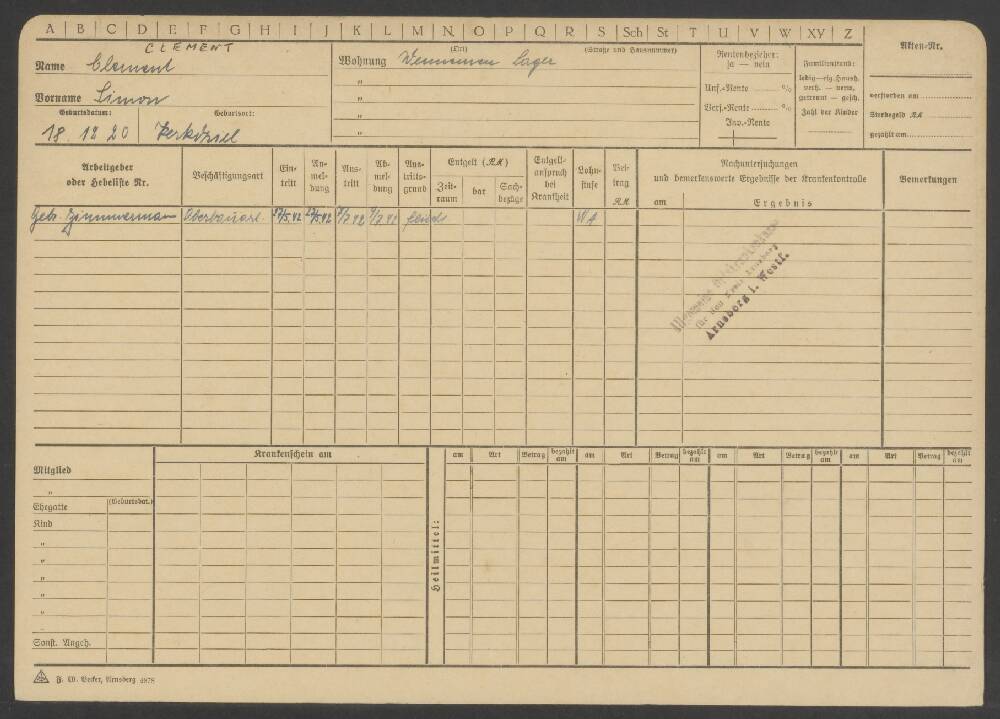 A B C D E F G H I J K L M N O P Q R S Sch St T U V W XY Z
CLEMENT
Name Clement
Vorname Simon
Geburtsdatum: Geburtsort:
18. 12 20
(Ort) (Straße und Hausnummer)
Wohnung Lager
"
"
"
Rentenbezieher:
ja — nein
Inv.-Rente %
Vers.-Rente %
Inv.-Rente
Familienstand:
ledig—eig. Haush.
verh. — verw.
getrennt — gesch.
Zahl der Kinder
Akten-Nr.
verstorben am
Sterbegeld RM
gezahlt am
Arbeitgeber
oder Hebeliste Nr.
Beschäftigungsart
Ein-
tritt
An-
mel-
dung
Aus-
tritt
Ab-
mel-
dung
Aus-
tritts-
grund
Entgelt (RM)
Zeit-
raum
bar
Sach-
bezüge
Entgelt-
anspruch
bei
Krankheit
Lohn-
stufe
Bei-
trag
RM
Nachuntersuchungen
und bemerkenswerte Ergebnisse der Krankenkontrolle
am Ergebnis
Bemerkungen
Geb. Zimmermann
Allgemeine Ortskrankenkasse
für den Kreis Arnsberg
Arnsberg i. Westf.
Krankenschein am
Mitglied
"
Ehegatte (Geburtsdat.)
Kind
"
"
"
"
"
"
Sonst. Angeh.
Heilmittel:
am Art Betrag bezahlt am am Art Betrag bezahlt am am Art Betrag bezahlt am am Art Betrag bezahlt am
F. W. Becker, Arnsberg 4878